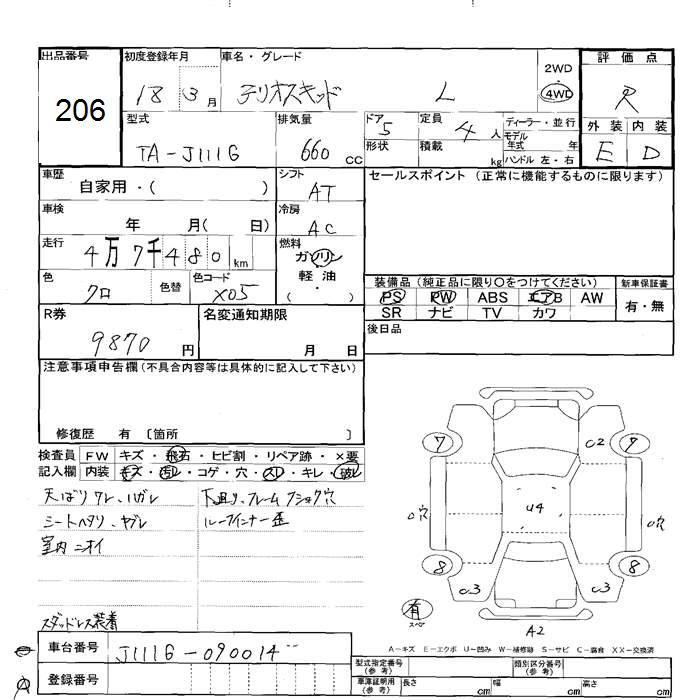 出品番号
206
初度登録年月
18 3月
車名・グレード
テリオスキッド L
2WD
4WD
評価点
R
外装 内装
E D
型式
TA-J111G
排気量
660 CC
ドア 5
形状
定員 4 人
積載 kg
ディーラー・並行
モデル年式 年
ハンドル 左・右
車歴
自家用・( )
シフト
AT
セールスポイント (正常に機能するものに限ります)
車検
年 月( 日)
冷房
AC
走行
4万7千480 km
燃料
ガソリン
軽油
( )
色
クロ
色替
色コード
X05
装備品 (純正品に限り○をつけてください)
PS PW ABS エアB AW
SR ナビ TV カワ
新車保証書
有・無
R券
9870 円
名変通知期限
月 日
後日品
注意事項申告欄 (不具合内容等は具体的に記入して下さい)
修復歴 有 〔箇所 〕
検査員記入欄
FW キズ・飛石・ヒビ割・リペア跡・×要
内装 キズ・汚レ・コゲ・穴・スレ・キレ・破レ
天ばりワレ、ハガレ
シートヘタリ、ヤブレ
室内ニオイ
スタッドレス装着
下廻り、フレーム
ルーフインナー歪
7 C2 7
穴 U4 穴
8 C3 C3 8
有
スペア
A2
A-キズ E-エクボ U-凹み W-補修跡 S-サビ C-腐食 XX-交換済
車台番号
J111G-090014
登録番号
型式指定番号
(参考)
類別区分番号
(参考)
車庫証明用
(参考)
長さ cm 幅 cm 高さ cm